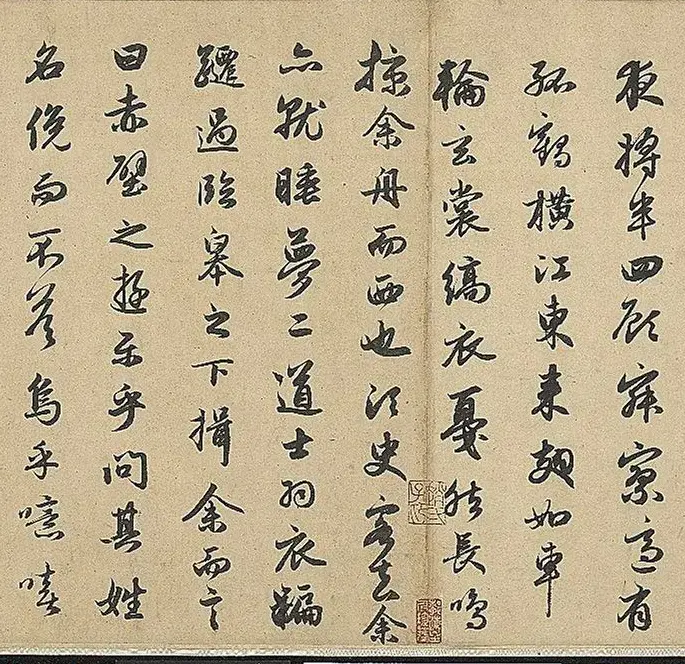 夜將半四顧寂寥適有
孤鶴橫江東來翅如車
輪玄裳縞衣戛然長鳴
掠余舟而西也須臾客去余
亦就睡夢二道士羽衣蹁
躚過臨皋之下揖余而言
曰赤壁之遊樂乎問其姓
名俛而不答烏乎噫嘻